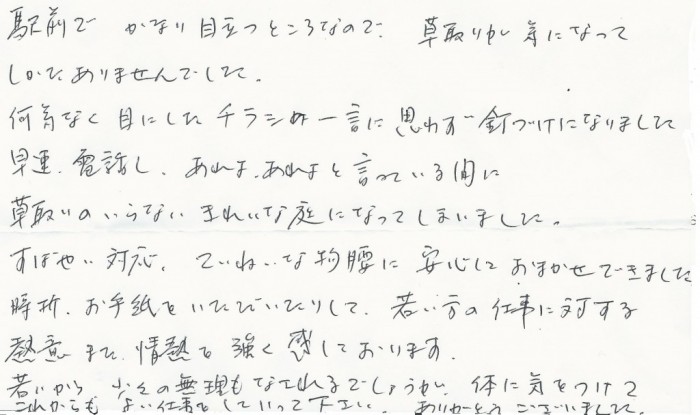 駅前で かなり目立つところなので、草取りが気になって
しかたありませんでした。
何気なく目にしたチラシの一言に思わず釘づけになりました
早速、電話し、あれよ、あれよと言っている間に
草取りのいらないきれいな庭になってしまいました。
すばやい対応、ていねいな物腰に安心しておまかせできました
時折、お手紙をいただいたりして、若い方の仕事に対する
熱意また、情熱を強く感じております。
若いから 少々の無理もなされるでしょうが、体に気をつけて
これからも よい仕事をしていって下さい。ありがとうございました。